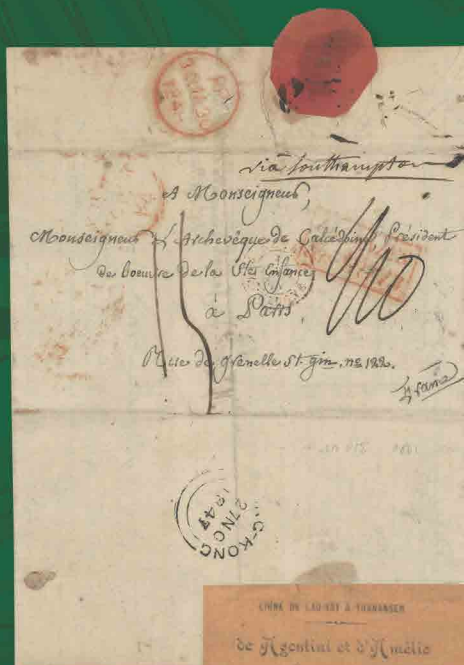 via Southampton
A Monseigneur,
Monseigneur L'Archevêque de Calcédoine, Président
de l'oeuvre de la Ste Enfance
à Paris
Rue de Grenelle St. gin. no 122.
france
G-KONG
27 NO
1847
LIGNE DE LAO-KAY A YUNNANSEN
de Agentini et d'Amélie